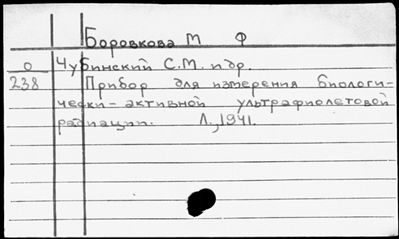 Боровкова М Ф
О Чубинский С.М. и др.
238 Прибор для измерения биологи-
чески-активной ультрафиолетовой
радиации. Л., 1941.